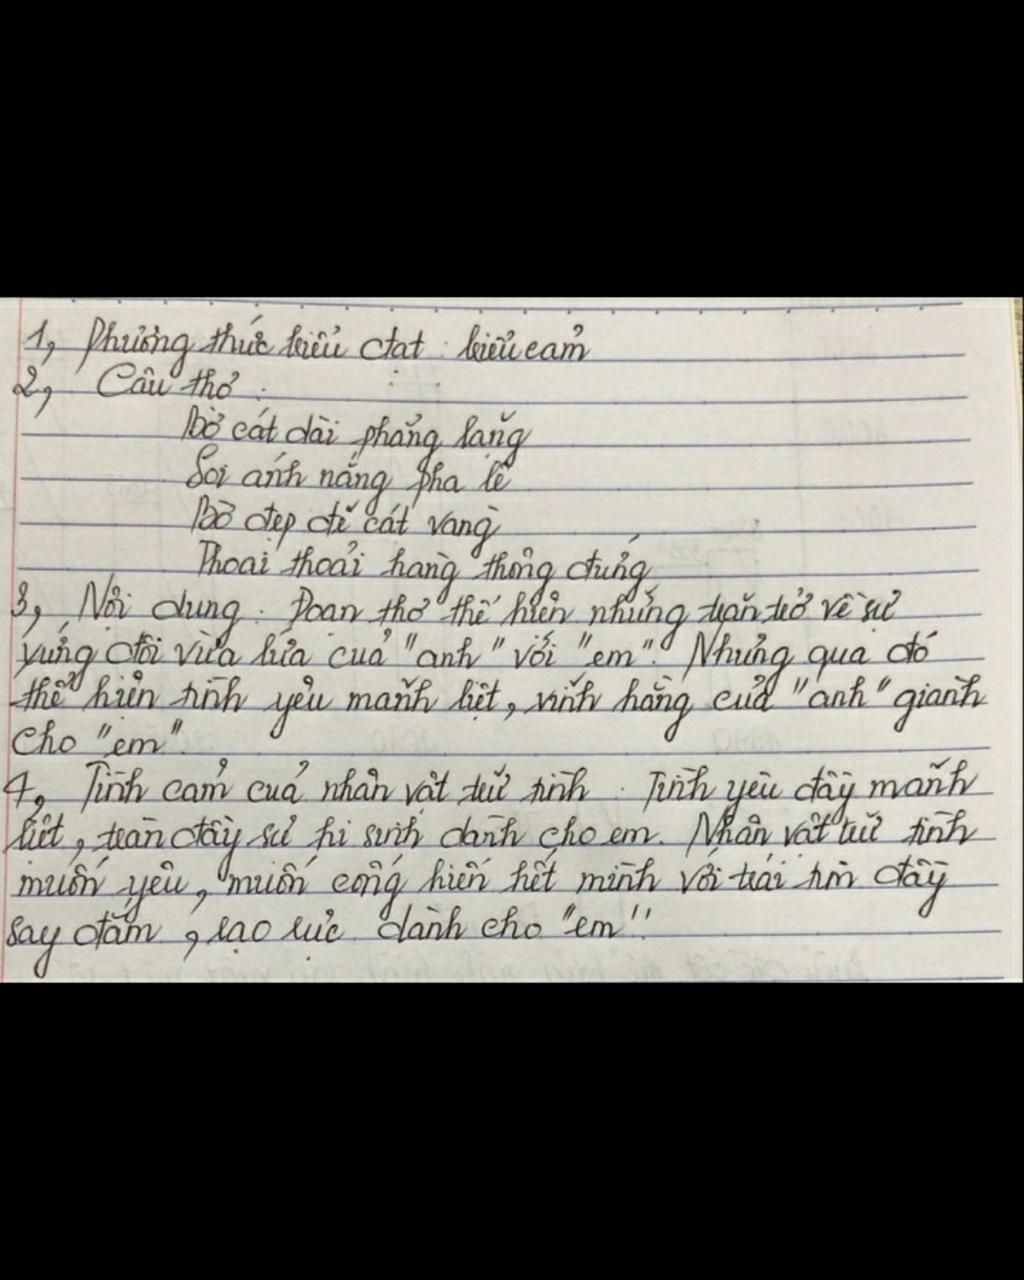 1, Phương thức biểu đạt : biểu cảm
2, Câu thơ :
Bờ cát dài phẳng lặng
Soi ánh nắng pha lê
Bờ đẹp đẽ cát vàng
Thoai thoải hàng thông đứng
3, Nội dung : Đoạn thơ thể hiện những trăn trở về sự
xứng đôi vừa lứa của "anh" với "em". Nhưng qua đó
thể hiện tình yêu mãnh liệt, vĩnh hằng của "anh" giành
cho "em".
4, Tình cảm của nhân vật trữ tình : Tình yêu đầy mãnh
liệt, tràn đầy sự hi sinh dành cho em. Nhân vật trữ tình
muốn yêu, muốn cống hiến hết mình với trái tim đầy
say đắm, rạo rực dành cho "em"